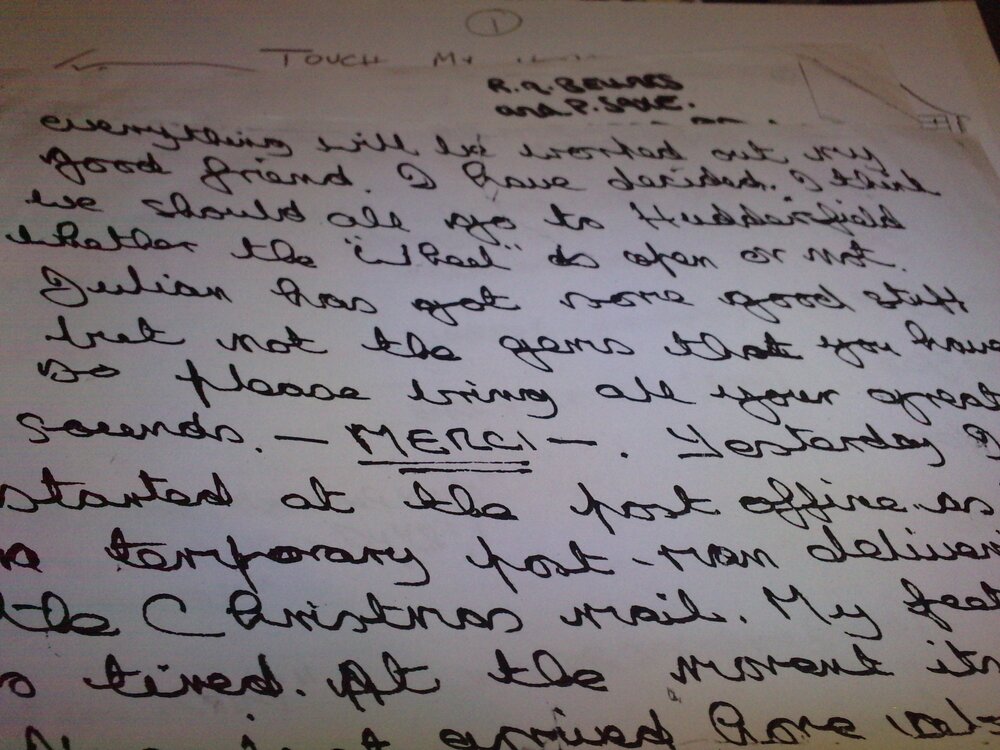 1
TOUCH MY
and P.
everything will be worked out my
good friend. I have decided. I think
we should all go to Hudderfield
whether the "Wheel" is open or not.
Julian has got some good stuff
but not the gems that you have
so please bring all your great
sounds. — MERCI —. Yesterday I
started at the post office as
a temporary post-man deliver
the Christmas mail. My feet
so tired. At the moment its
arrived home